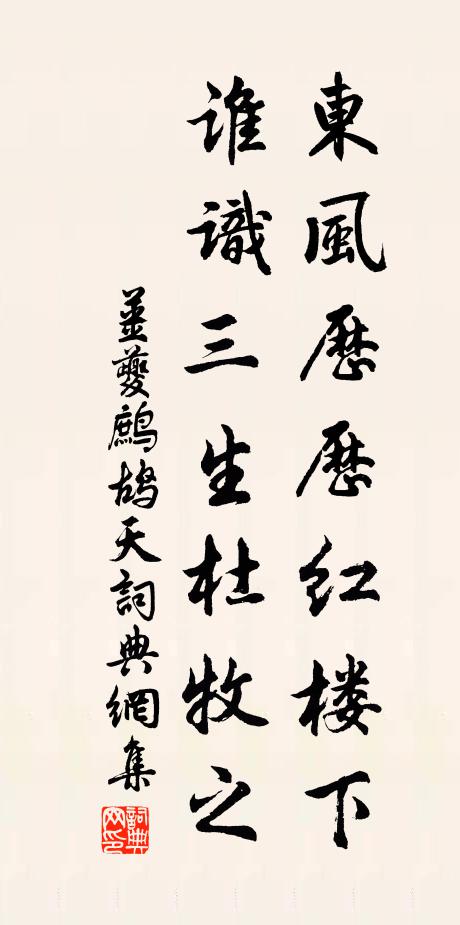 東風歷歷紅楼下
誰識三生杜牧之
姜夔鷓鴣天詞典網集
詞典网印